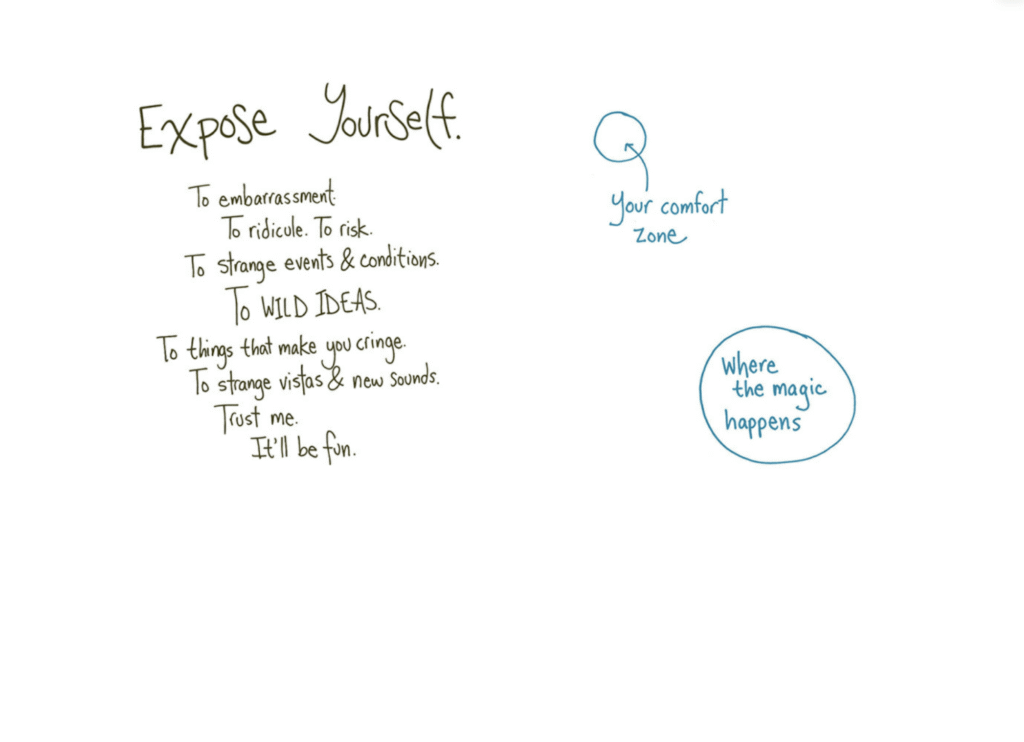 Expose Yourself.
To embarrassment.
To ridicule. To risk.
To strange events & conditions.
To WILD IDEAS.
To things that make you cringe.
To strange vistas & new sounds.
Trust me.
It'll be fun.
Your comfort
zone
Where
the magic
happens